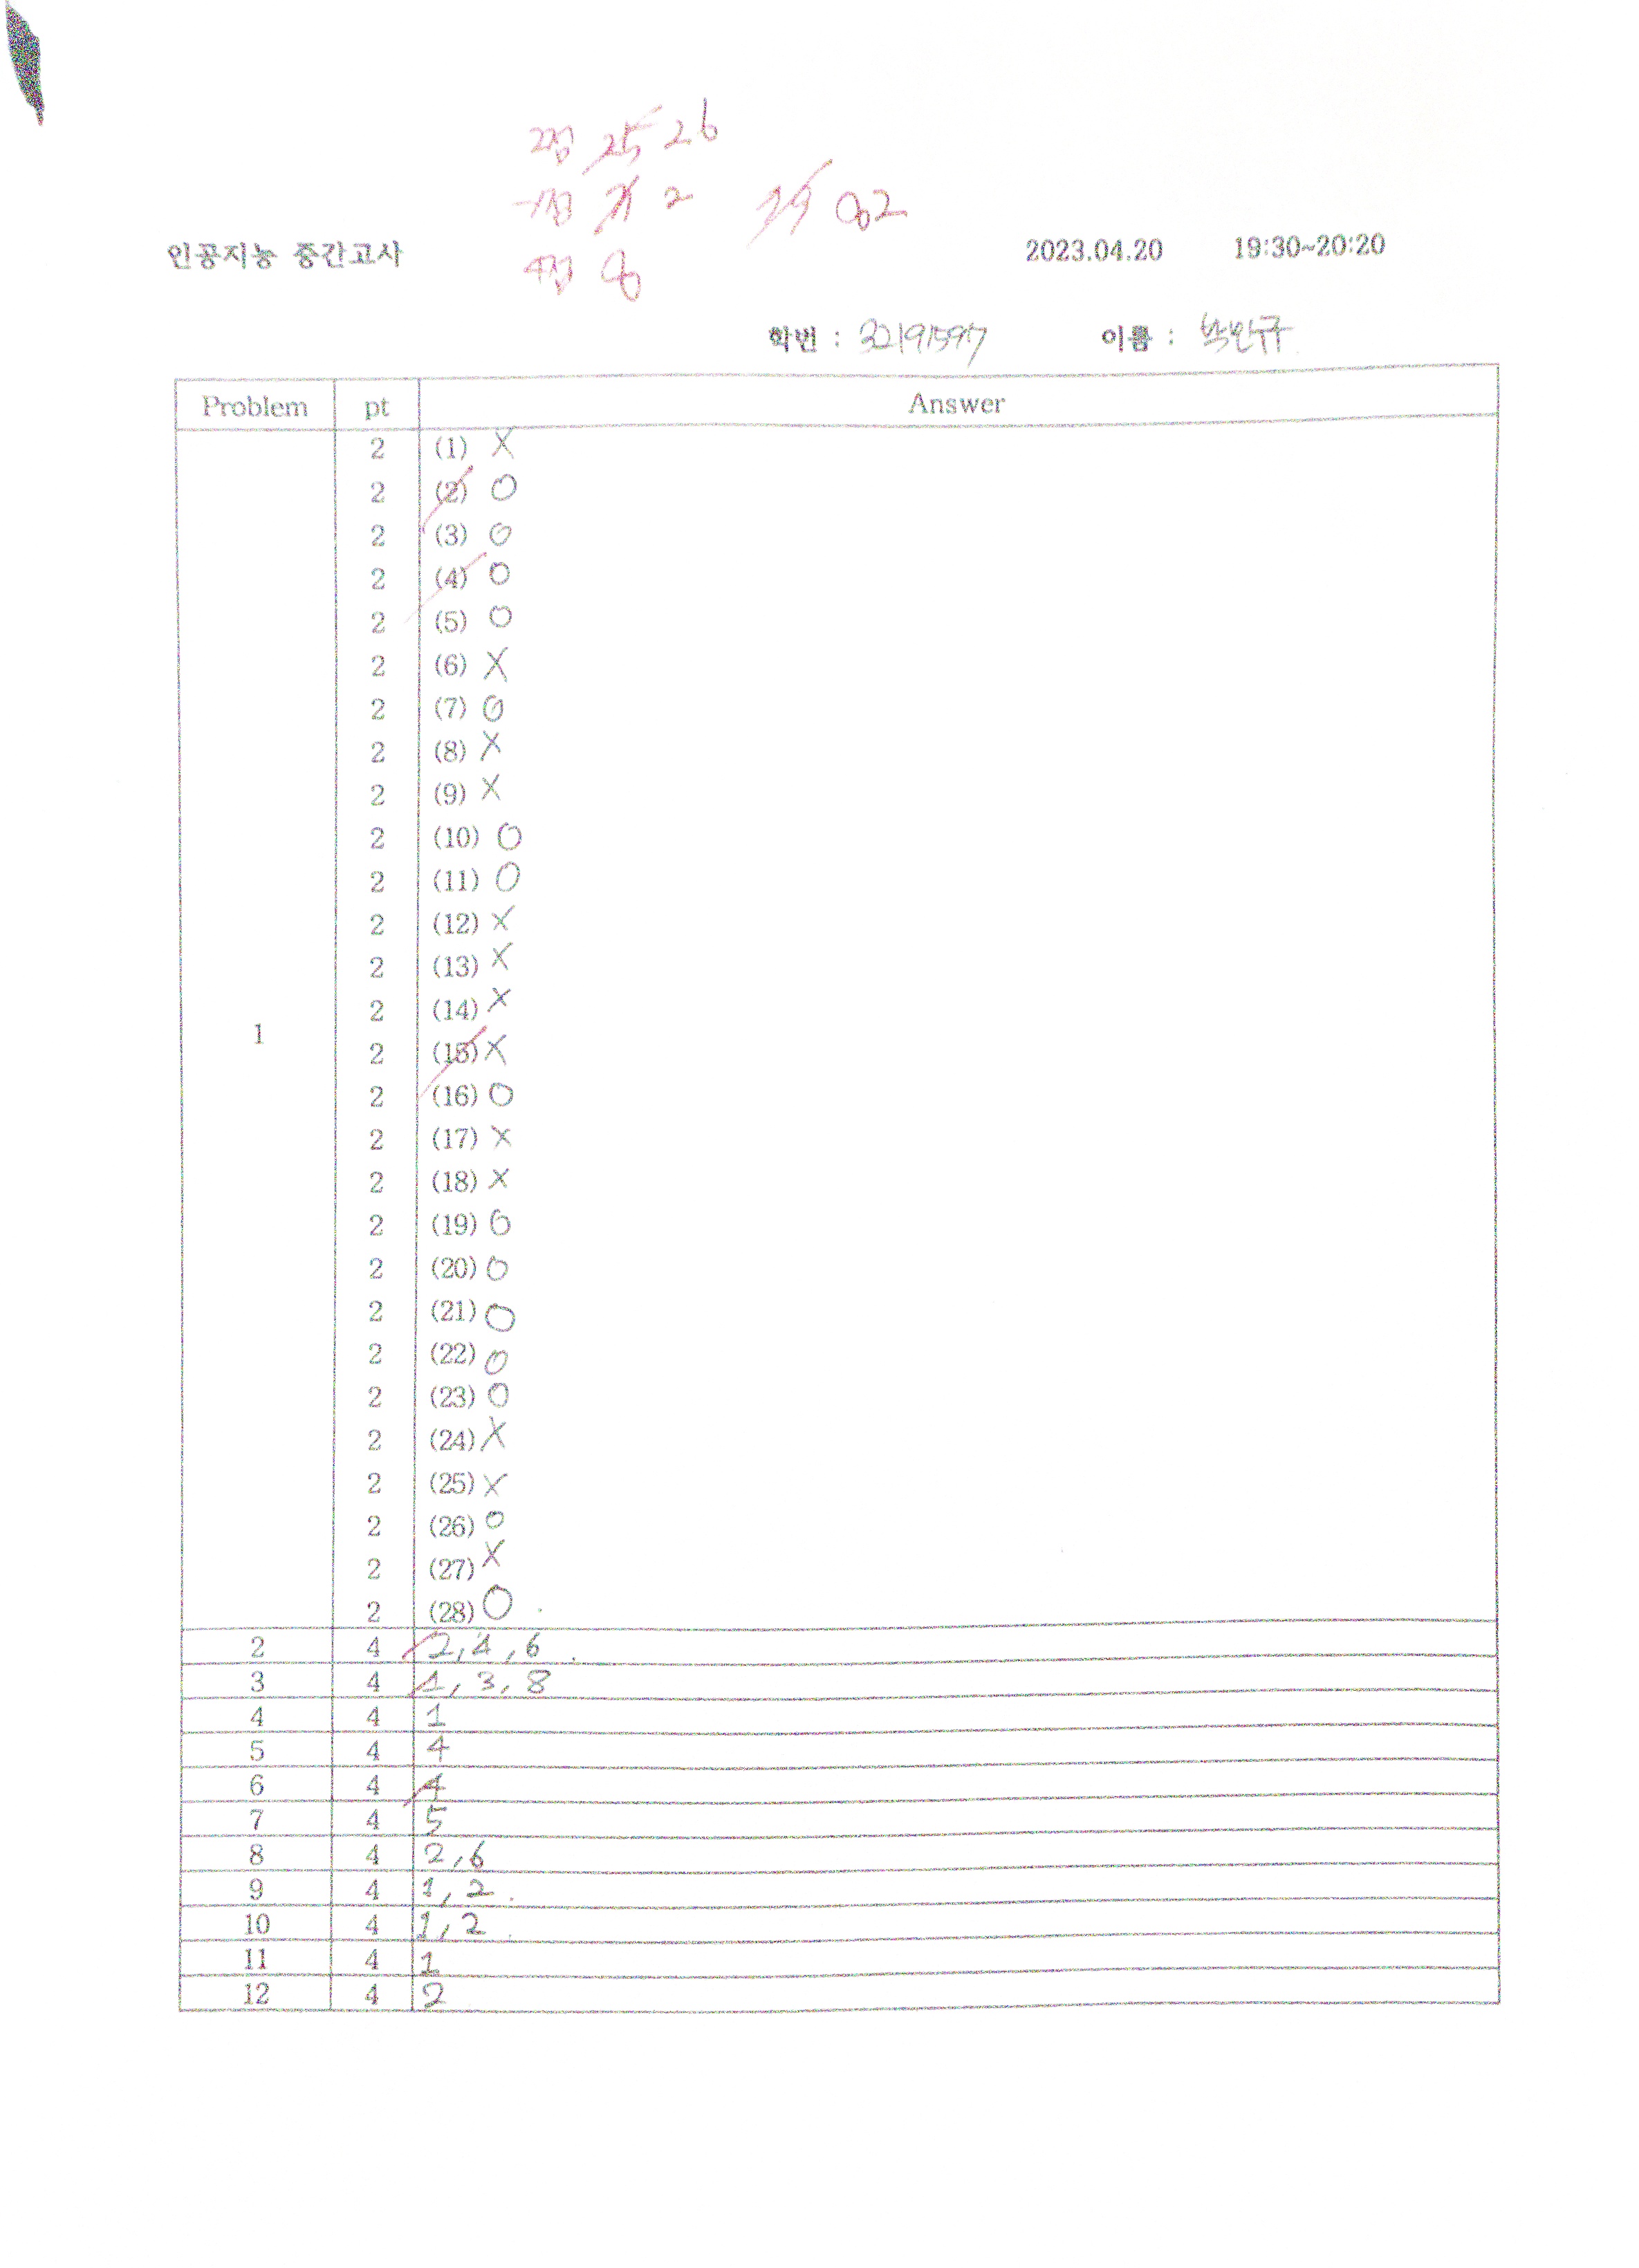 2점 25 26
2
82
인공지능 중간고사
2023.04.20 19:30~20:20
4점 8
학번 : 32191597 이름 : 박민규
Problem pt Answer
2 (1) X
2 (2) O
2 (3) O
2 (4) O
2 (5) O
2 (6) X
2 (7) O
2 (8) X
2 (9) X
2 (10) O
2 (11) O
2 (12) X
2 (13) X
2 (14) X
1
2 (15) X
2 (16) O
2 (17) X
2 (18) X
2 (19) O
2 (20) O
2 (21) O
2 (22) O
2 (23) O
2 (24) X
2 (25) X
2 (26) O
2 (27) X
2 (28) O
2 4 2, 4, 6
3 4 1, 3, 8
4 4 1
5 4 4
6 4 4
7 4 5
8 4 2, 6
9 4 1, 2
10 4 1, 2
11 4 1
12 4 2